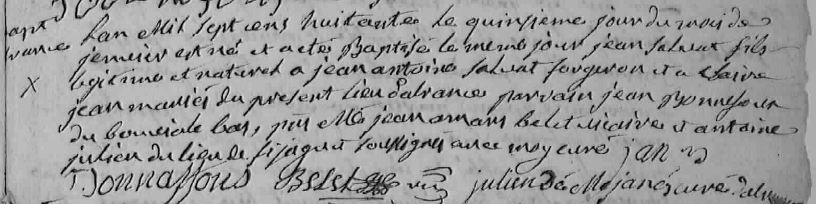 Lan Mil sept cens huitante le quinsieme jour du mois de
janvier est né et a eté Baptisé le meme jour jean salvat fils
legitime et naturel a jean antoine salvat forgeron et a
jean mariés du present lieu dalrance parrain jean Bonnefous
du bas, pns Me jean amans belet vicaire et antoine
julien du lieu de soussignés avec moy curé
Bonnaffous Belet vic julien De Mejanés curé